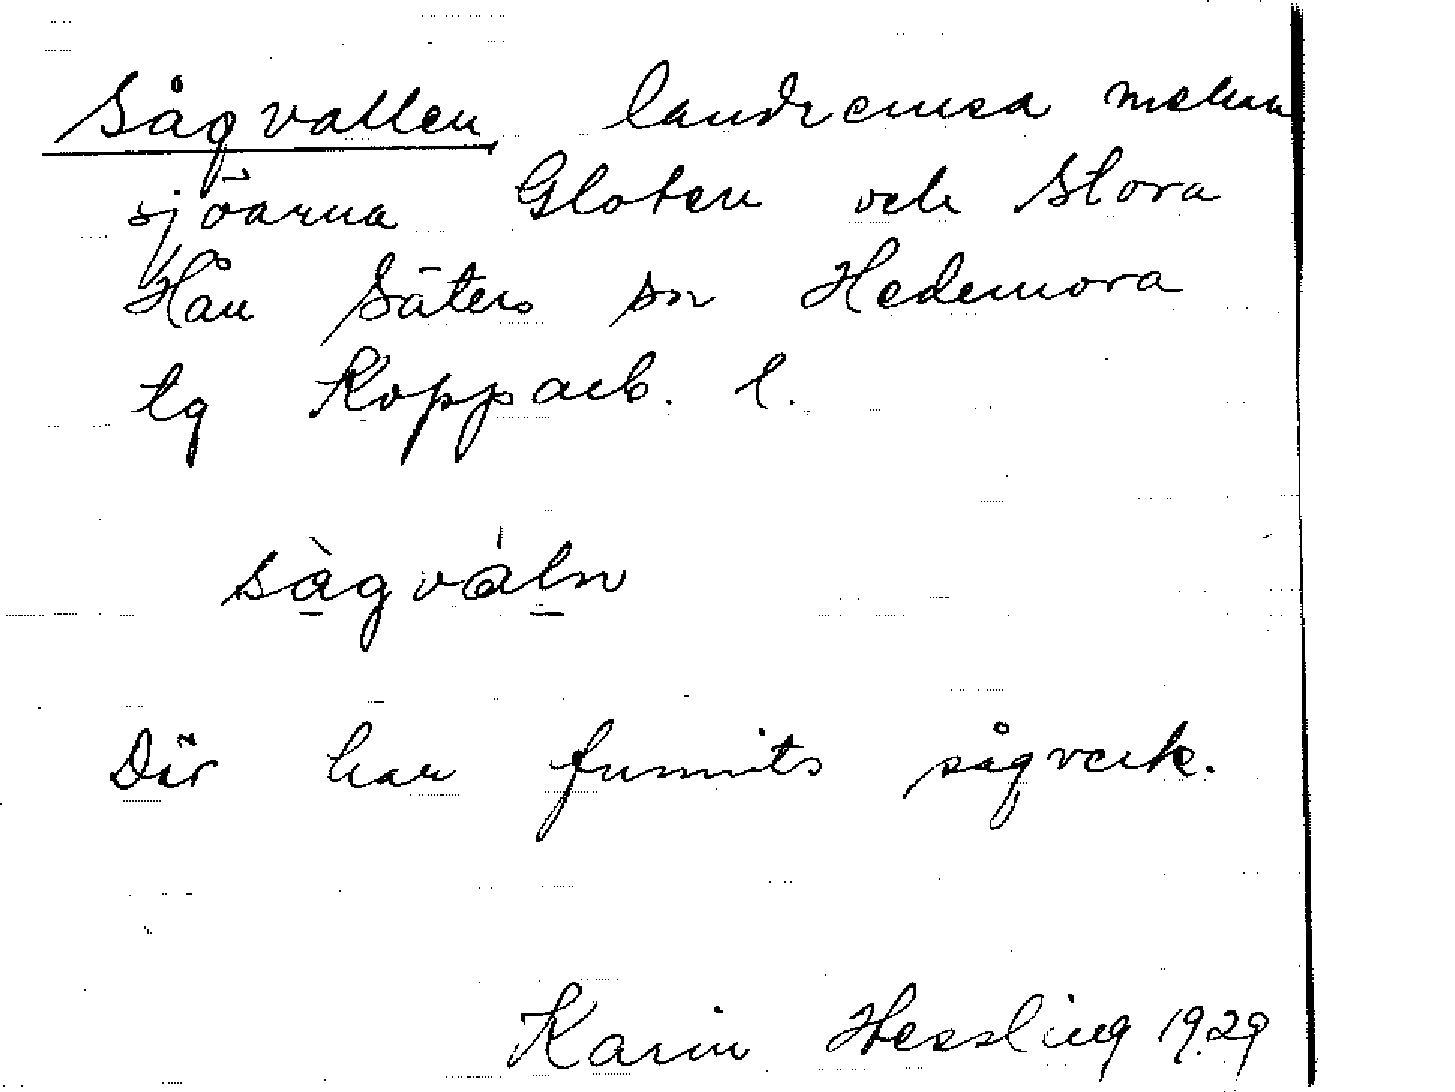 Sågvallen landremsa mellan
sjöarna Gloten och Stora
Hån Säters sn Hedemora
tg Kopparb. l.
sàgvál̲n
Där har funnits sågverk.
Karin Hessling 1929